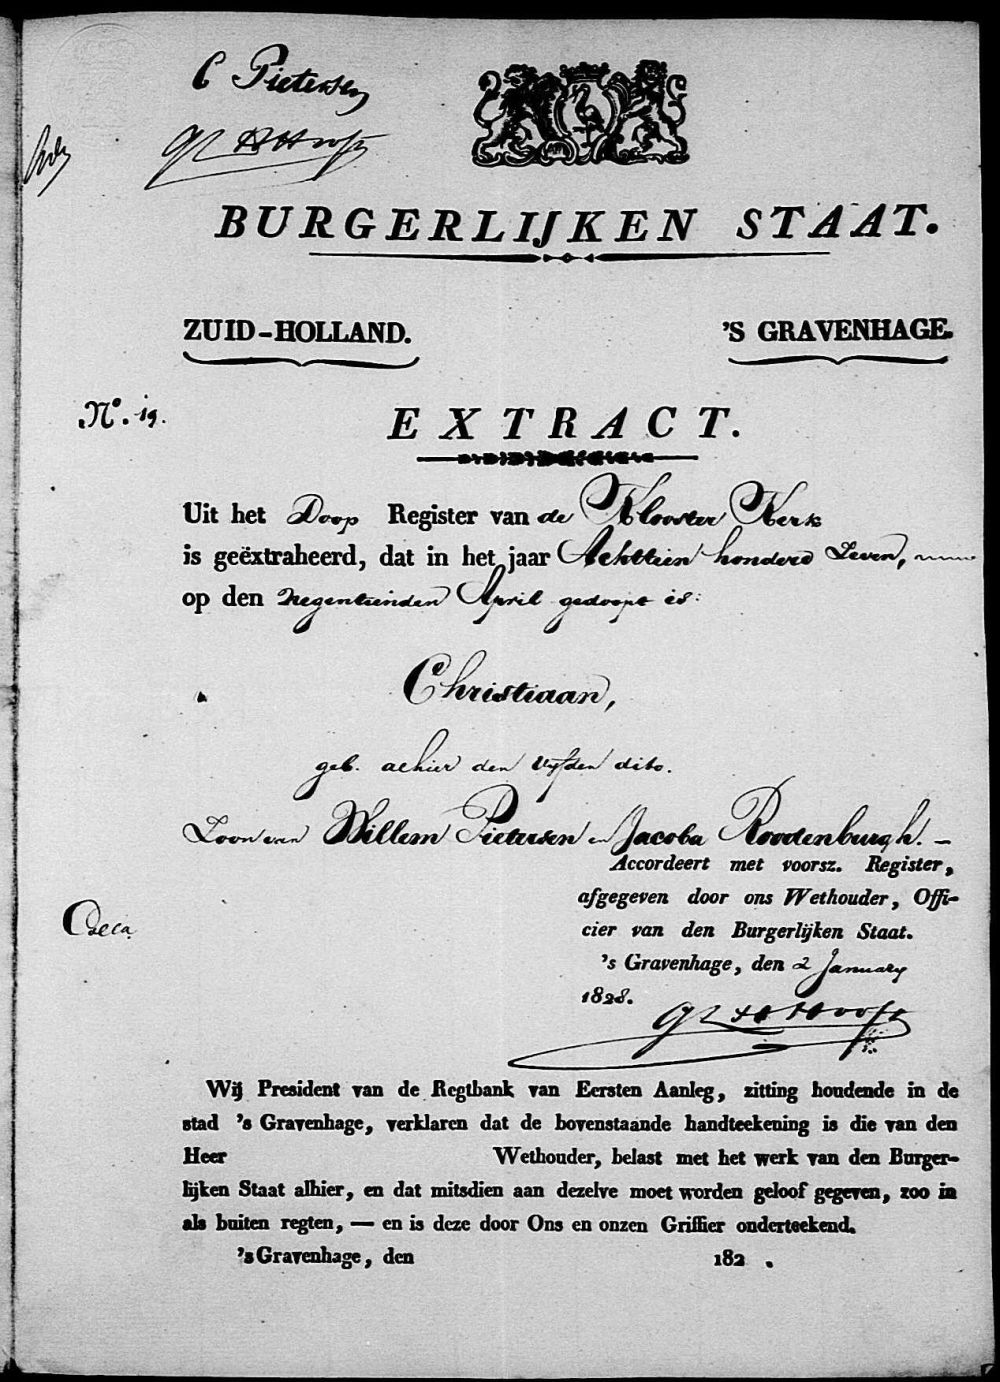 C Pietersen
BURGERLIJKEN STAAT.
ZUID-HOLLAND.
'S GRAVENHAGE.
No. 19.
EXTRACT.
Uit het Doop Register van de Klooster Kerk
is geëxtraheerd, dat in het jaar Achttien honderd Zeven,
op den Negentienden April gedoopt is:
Christiaan,
geb. alhier den vyfden dito.
Zoon van Willem Pietersen en Jacoba Roodenburgh. –
Accordeert met voorsz. Register,
afgegeven door ons Wethouder, Offi-
cier van den Burgerlijken Staat.
's Gravenhage, den 2 January
1828.
Wij President van de Regtbank van Eersten Aanleg, zitting houdende in de
stad 's Gravenhage, verklaren dat de bovenstaande handteekening is die van den
Heer Wethouder, belast met het werk van den Burger-
lijken Staat alhier, en dat mitsdien aan dezelve moet worden geloof gegeven, zoo in
als buiten regten, — en is deze door Ons en onzen Griffier onderteekend.
's Gravenhage, den 182 .